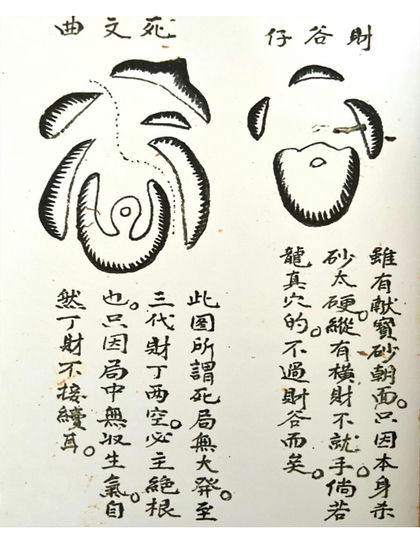 財谷仔
雖有献寶砂朝面。只因本身杀
砂太硬。縱有橫財不就手。倘若
龍真穴的。不過財谷而矣。
死文曲
此圖所謂死局無大發。至
三代財丁两空。必主絶根
也。只因局中無収生氣。自
然丁財不接續耳。